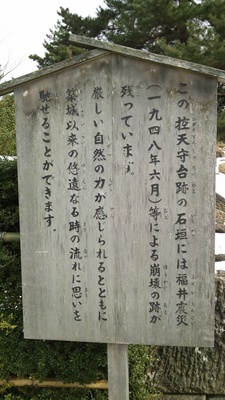 この控天守台跡の石垣には福井震災
（一九四八年六月）等による崩壊の跡が
残っています。
厳しい自然の力が感じられるとともに
築城以来の悠遠なる時の流れに思いを
馳せることができます。